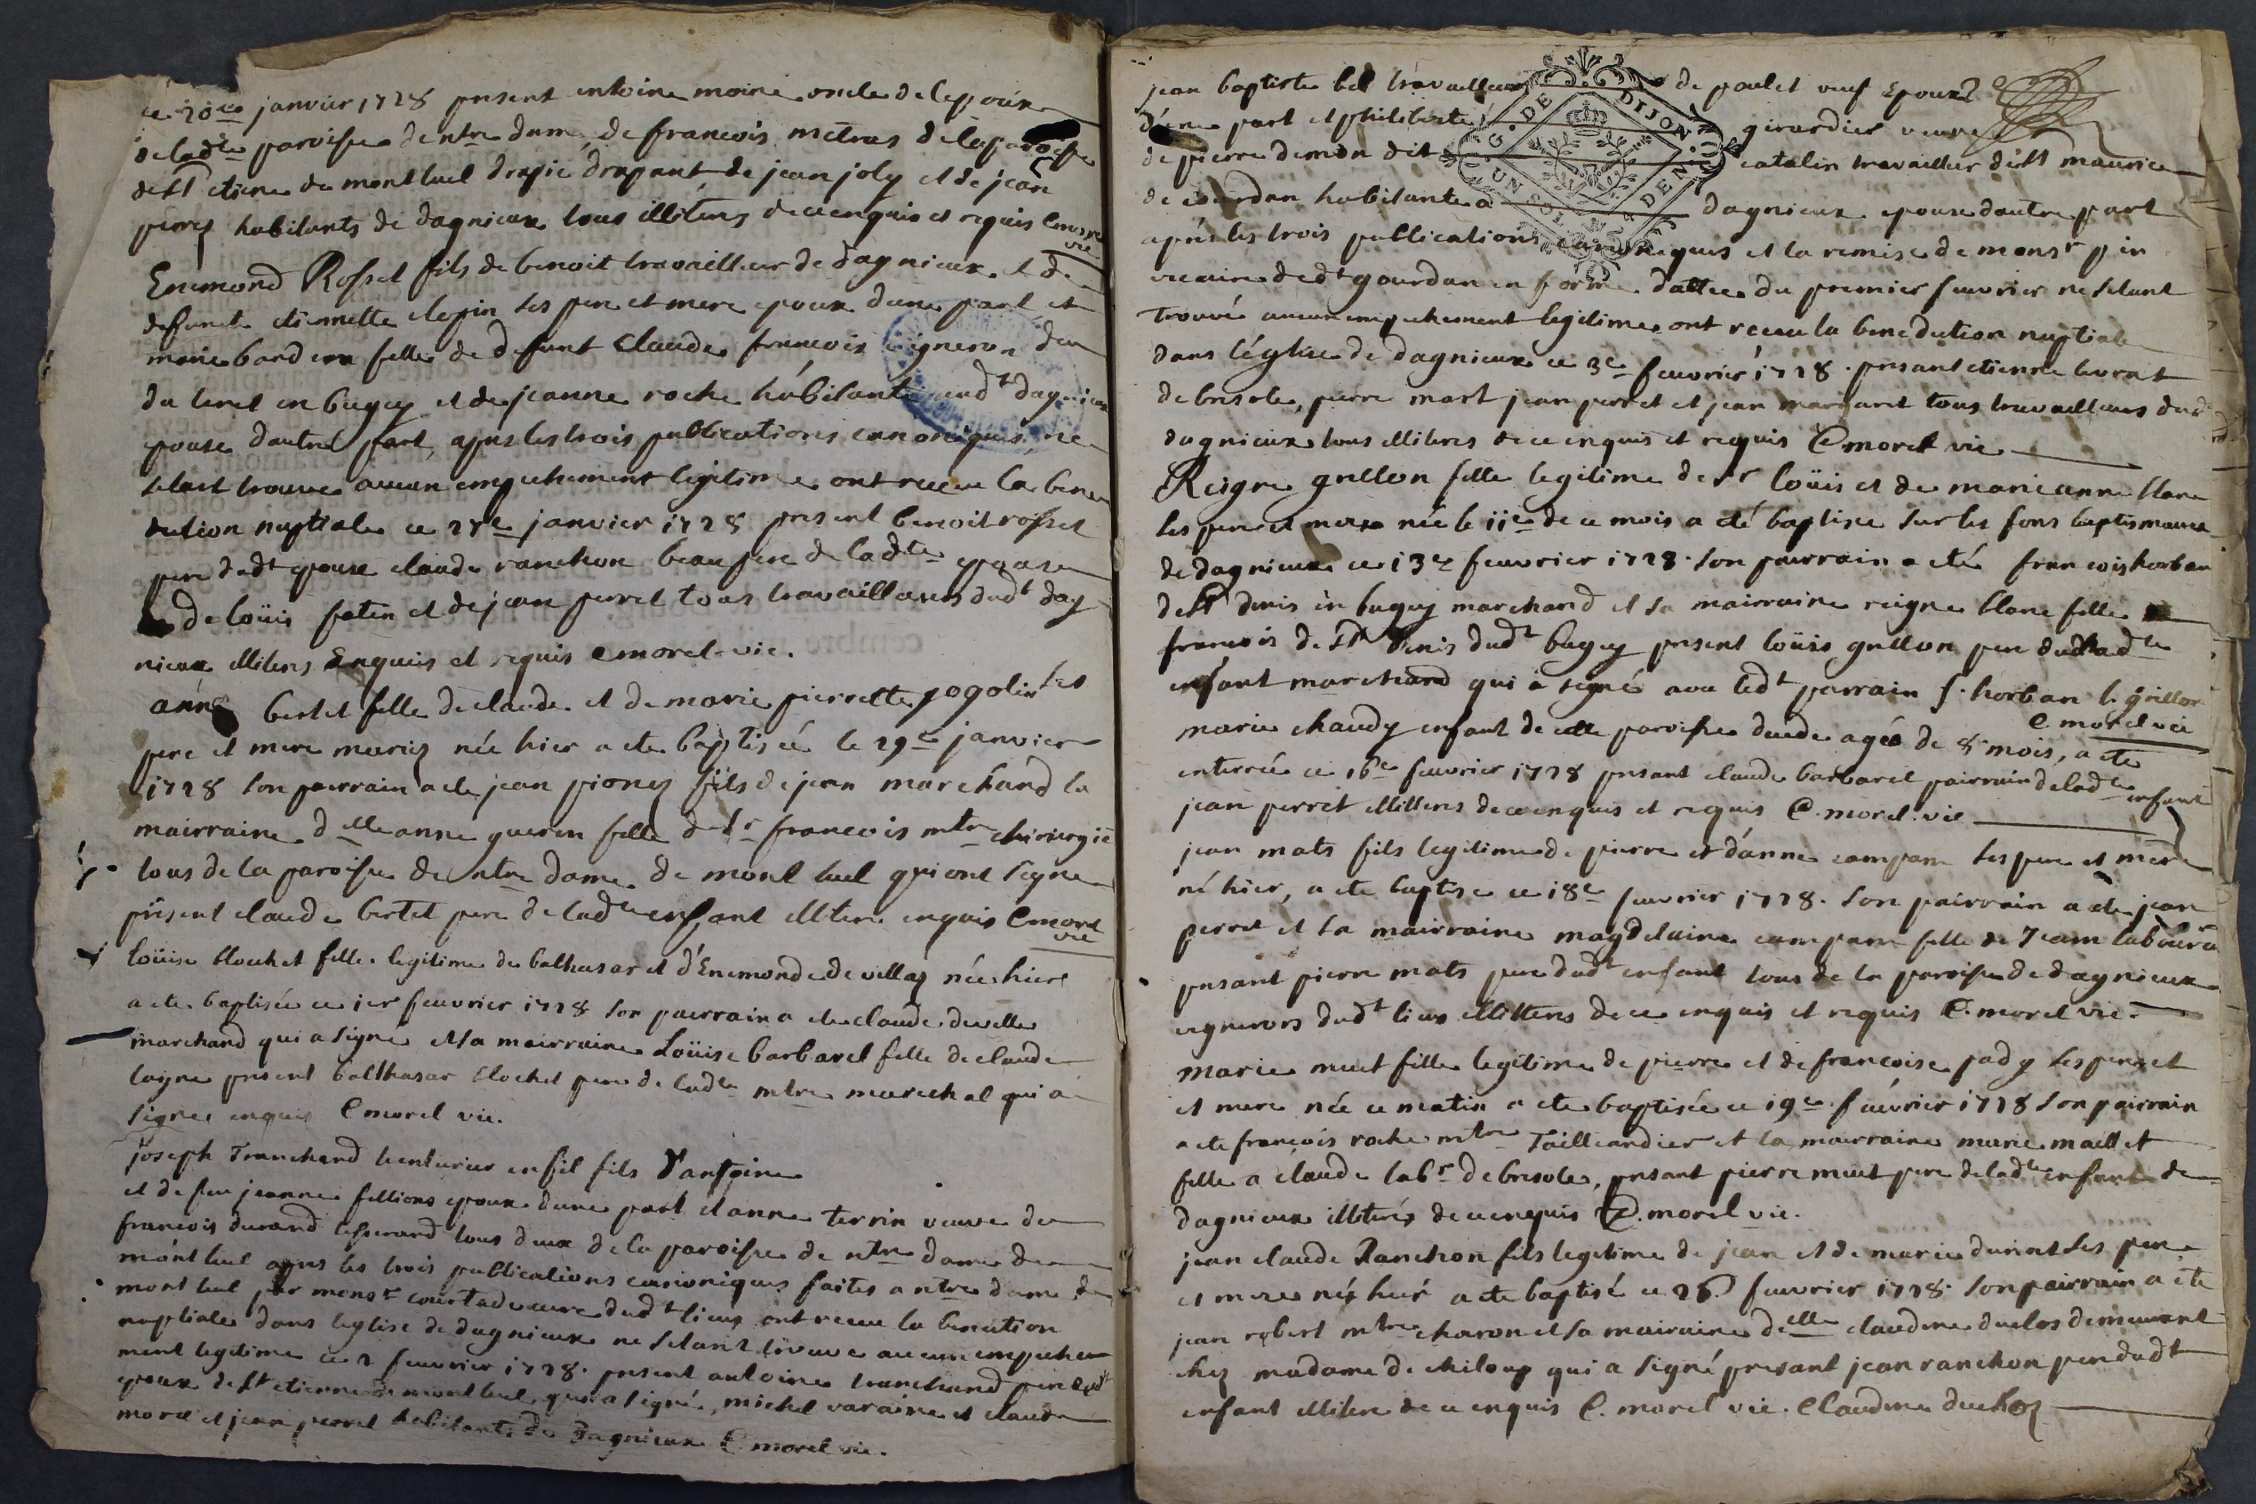 ce 20ce janvier 1728 present antoine moine oncle de lepoux
deladte paroisse de ntre dame, de francois metras de la paroisse
de st etiene de montluel drapié drapant de jean joly et de jean
perres habitants de dagnieux tous illiteres de ce enquis et requis C morel
vic
Enemond Rosset fils de benoit travailleur de dagnieux et de
defuncte etiennette clepin ses pere et mere epoux dune part et
marie bard fille de defunt claude francois vigneron de
du teret en bugey et de jeanne roche habitante audt dagnieux
epouse dautre part, apres les trois publications canoniques, ne
setant trouve aucun empechement legitime ont receu la bene
diction nuptiale ce 27e janvier 1728 present benoit rosset
pere dudt epoux claude ranchon beau pere de ladte epouse
de loüis fatin et de jean perret tous travailleurs dudt dag
nieux illiteres Enquis et requis C morel vic.
anne bertet fille de claude et de marie pierrette pogolin ses
pere et mere mariez née hier a ete baptisée le 29e janvier
1728 son parrain a ete jean pioney fils de jean marchand la
mairraine delle anne guerin fille de sr francois mtre chirurgie
tous de la paroisse de ntre dame de mont luel qui ont signe
present claude bertet pere de ladte enfant illitere enquis C morel
vic
Loüise clochet fille legitime de balthasar et d'Enemonde de villaz née hier
a ete baptisée ce 1er feuvrier 1728 son parrain a ete claude deville
marchand qui a signé et sa mairraine Loüise barbarel fille de claude
present balthasar clochet pere de ladte mtre marechal qui a
signe enquis C morel vic.
joseph Tranchand tenturier en fil fils d'antoine
et de feu jeanne fillions epoux dune part et anne terrin veuve de
francois durand tisserand tous deux de la paroisse de ntre dame de
mont luel apres les trois publications canoniques faites a ntre dame de
mont luel par monsr courtade cure dudt lieux ont receu la benection
nuptiale dans leglise de dagnieux ne setant trouve aucun empeche
ment legitime ce 2 feuvrier 1728. present antoine tranchand pere dudt
epoux de st etienne de mont luel qui a signé, michel varaine et claude
morel et jean perret habitants de Dagnieux C morel vic.
jean baptiste bel travailleur de poulet veuf Epoux
d'une part et philiberte girardier veuve
de pierre demon dit catelin travailleur de st maurice
de gourdan habitante a dagnieux epouse dautre part
apres les trois publications canoniques et la remise de monsr pin
vicaire dedt gourdan en forme dattée du premier feuvrier ne setant
trouvé aucun empechement legitime ont receu la benediction nuptiale
dans léglise de dagnieux ce 3e feuvrier 1728. presant etienne levrat
de bresole, pierre mart jean perret et jean margaret tous travailleurs dudt
dagnieux tous illiteres de ce enquis et requis C morel vic
Reigne grillon fille legitime de sr loüis et de marie anne blanc
ses pere et mere née le 11e de ce mois a eté baptisee sur les fons baptismaux
de dagnieux ce 13e feuvrier 1728. son parrain a eté francois horban
de st denis en bugey marchand et sa mairraine reigne blanc fille
francois de st Denis dudt bugey present loüis grillon pere de ladte
enfant marchand qui a signé avec ledt parrain f. horban l. grillon
C. morel vic
marie chaudy enfant de cette paroisse agée de 8 mois, a ete
enterrée ce 16e feuvrier 1728 presant claude barbarel pairrain de ladte enfant
jean perret illitteres de ce enquis et requis C. morel. vic
jean mats fils legitime de pierre et d'anne campan ses pere et mere
né hier, a ete baptise ce 18e feuvrier 1728. son pairrain a ete jean
perret et sa mairraine magdelaine campan fille de Jean laboureu
presant pierre mats pere dudt enfant tous de la paroisse de dagnieux
vignerons dudt lieux illitteres de ce enquis et requis C. morel vic.
marie muet fille legitime de pierre et de francoise pady ses pere et
et mere née ce matin a ete baptisée ce 19e feuvrier 1728 son pairrain
a ete francois roche mtre Taillandier et la mairraine marie maillet
fille a claude labr de bresole, presant pierre muet pere de ladte enfant de
dagnieux illiterés de ce enquis C. morel vic.
jean claude Ranchon fils legitime de jean et de marie durant ses pere
et mere né hier a ete baptisé ce 26 feuvrier 1728. son pairrain a ete
jean robert mtre charon et sa mairaine delle claudine duclos demeurant
chez madame de chiloup qui a signé presant jean ranchon pere dudt
enfant illitere de ce enquis C. morel vic. Claudine duclos
G. DE DIJON
UN SOL